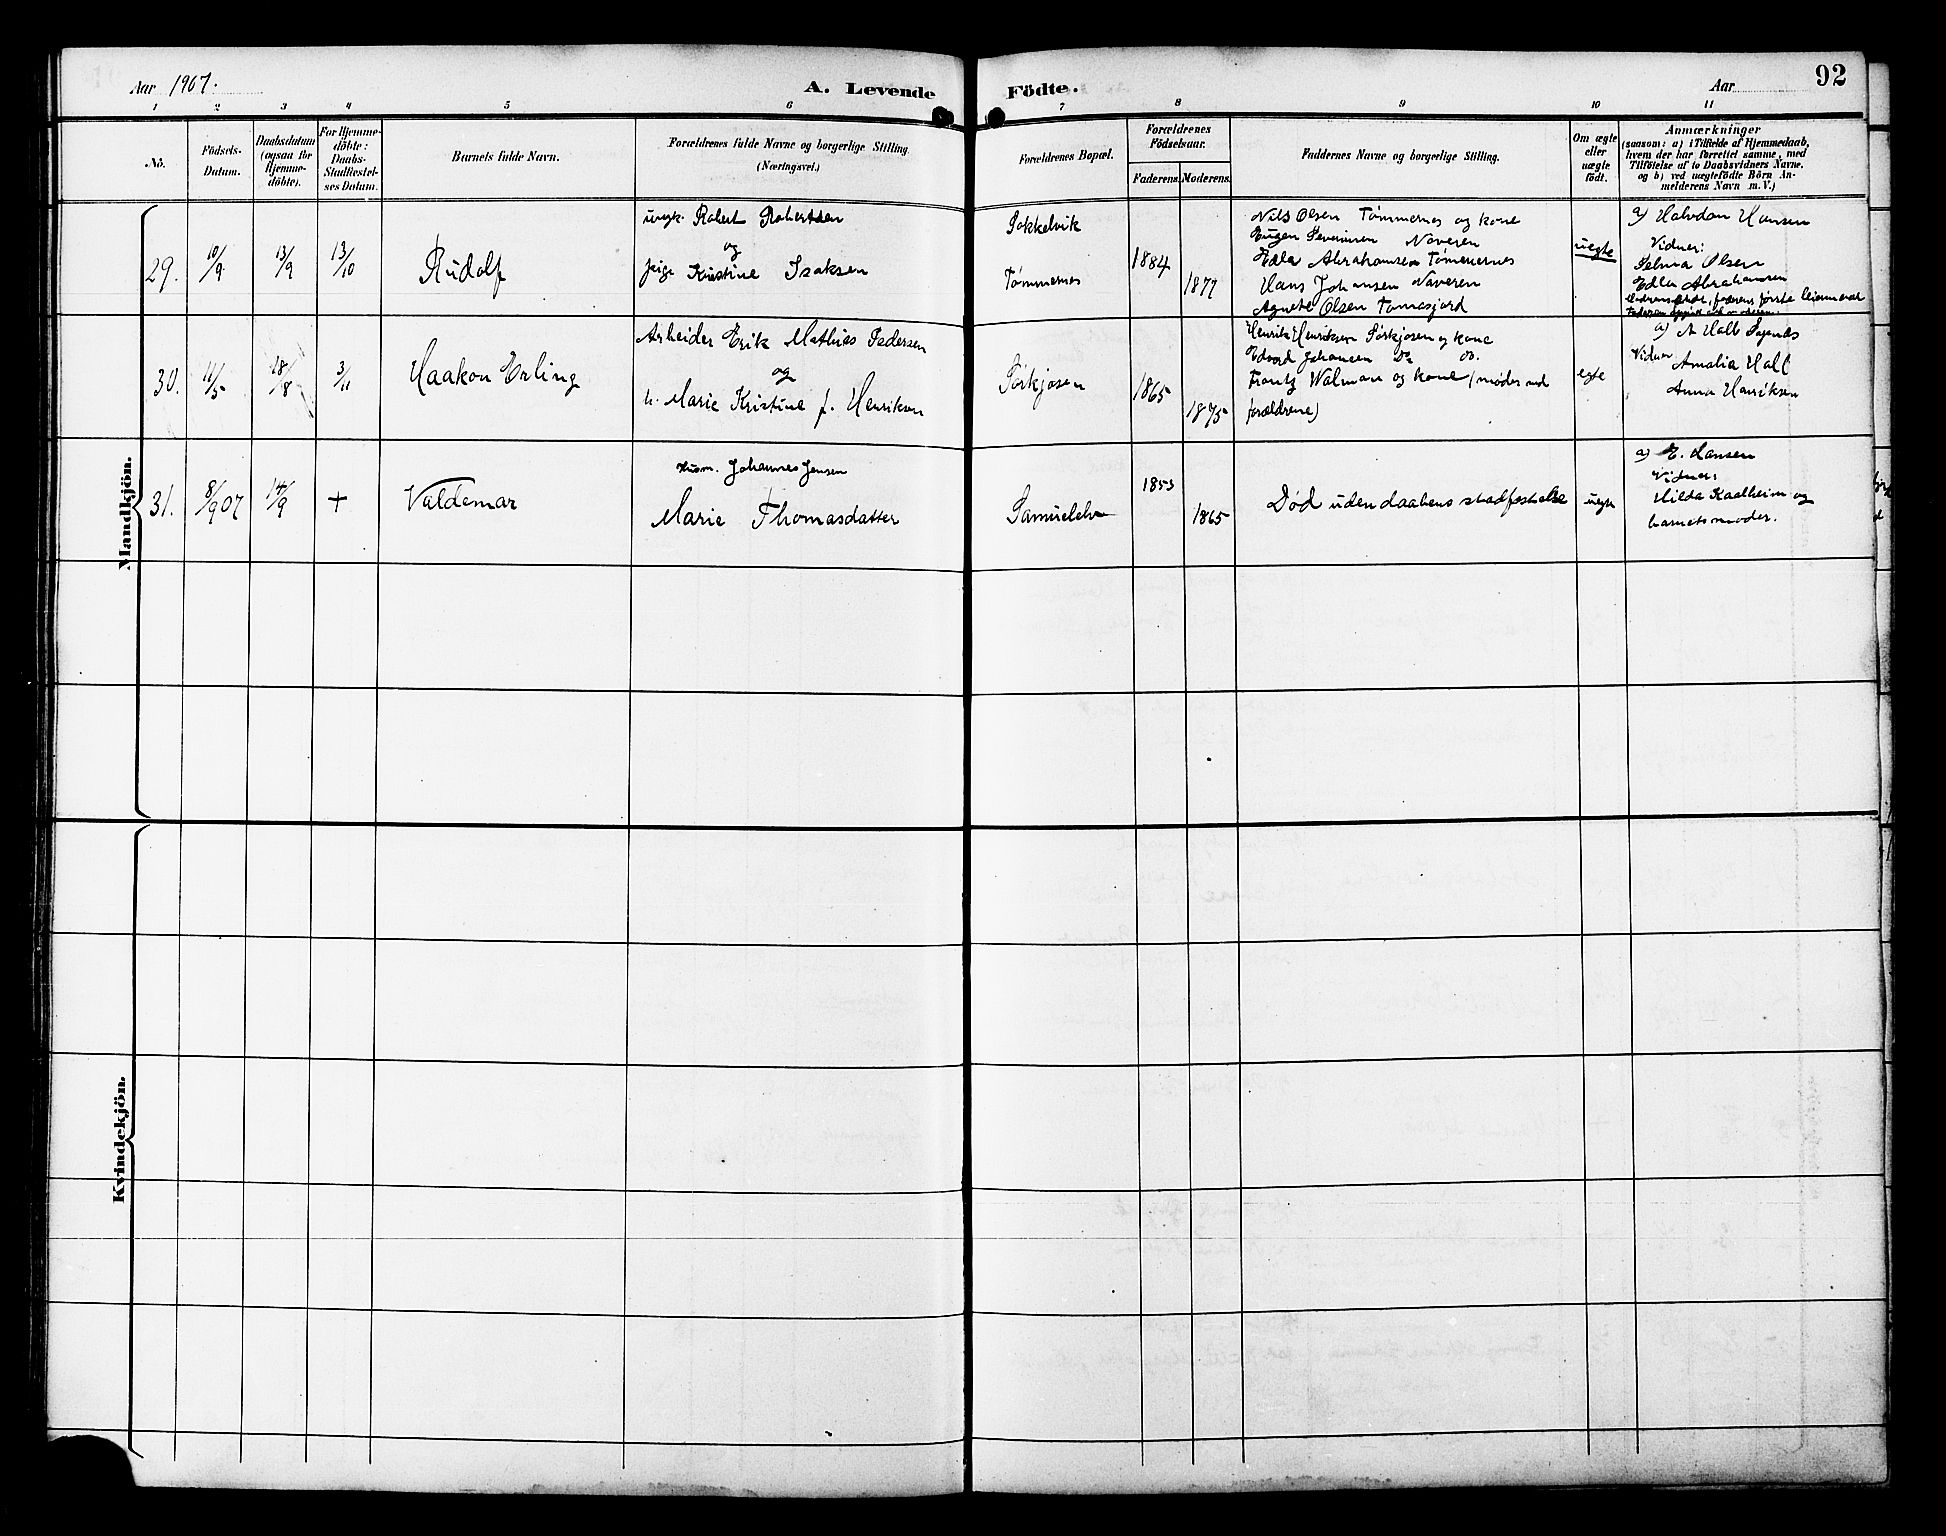 Aar 1907.
A. Levende Födte.
Aar
92
1 2 3 4 5 6 7 8 9 10 11
No.
Födsels-
Datum.
Daabsdatum
(ogsaa for
Hjemme-
döbte).
For Hjemme-
döbte:
Daabs-
Stadfæstel-
ses Datum.
Barnets fulde Navn.
Forældrenes fulde Navne og borgerlige Stilling
(Næringsvei.)
Forældrenes Bopæl.
Forældrenes
Födselsaar.
Faderens.
Moderens.
Faddernes Navne og borgerlige Stilling.
Om ægte
eller
uægte
födt.
Anmærkninger
(saasom: a) i Tilfælde af Hjemmedaab,
hvem der har forrettet samme, med
Tilföielse af to Daabsvidners Navne,
og b) ved uægtefödte Börn An-
melderens Navn m. V.)
Mandkjön.
29.
10/9
13/9
13/10
Rudolf
ungk. Robert Robertsen
og
pige Kristine Isaksen
Sokkelvik
Tømmernes
1884
1877
Nils Olsen Tømmernes og kone
Eugen Severinsen Naveren
Edla Abrahamsen Tømmernes
Hans Johansen Naveren
Agnete Olsen Tømmasjord
uegte
a) Halvdan Hansen
Vidner:
Selma Olsen
Edla Abrahamsen
faderens første leiermaal
30.
11/5
18/8
3/11
Haakon Erling
Arbeider Erik Mathias Pedersen
og
h. Marie Kristine f. Henriksen
Sørkjosen
1865
1875
Henrik Henriksen Sørkjosen og kone
Edvard Johansen Do do.
Frantz Walman og kone (møder ved
forældrene)
egte
a) A Hall Sagenæs
Vidner Amalia Hall
Anna Henriksen
31.
8/9 07
14/9
+
Valdemar
Husm. Johannes Jensen
Marie Thomasdatter
Samuelelv
1853
1865
Død uden daabens stadfæstelse
uegte
a) E. Hansen
Vidner:
Hilda Kaalheim og
barnets moder.
Kvindekjön.